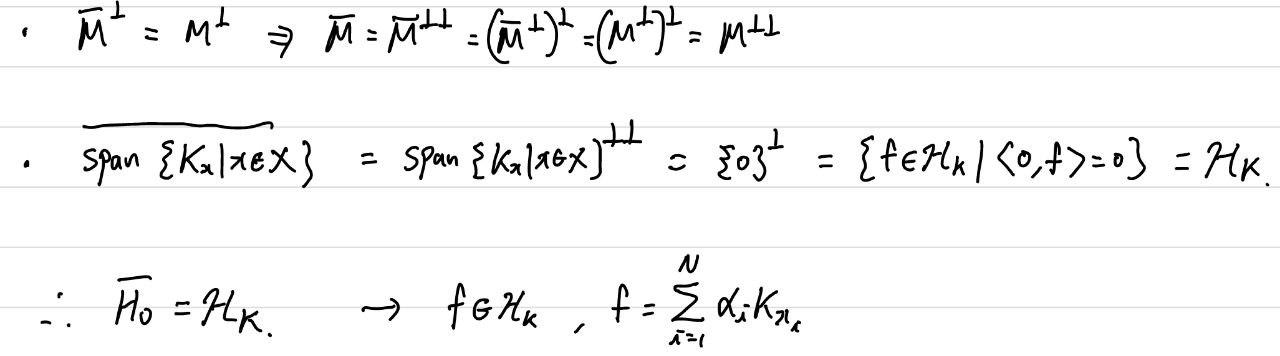 · M̅^⊥ = M^⊥ ⇒ M̅ = M̅^⊥⊥ = (M̅^⊥)^⊥ = (M^⊥)^⊥ = M^⊥⊥
· \overline{span {K_x | x∈X}} = span {K_x | x∈X}^⊥⊥ = {0}^⊥ = {f∈ℋ_K | <0, f> = 0} = ℋ_K.
∴ \overline{H_0} = ℋ_K. → f∈ℋ_K , f = ∑_{i=1}^{N} α_i K_{x_i}